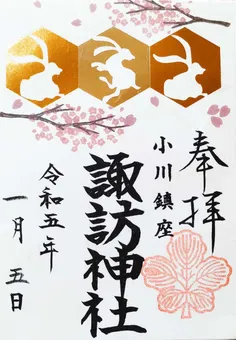 奉拝
小川鎮座
諏訪神社
令和五年
一月五日